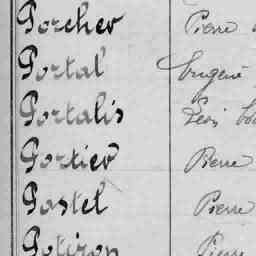 Porcher Pierre
Portal Eugène
Portalis Léon
Portier Pierre
Postel Pierre
Potiron Pierre